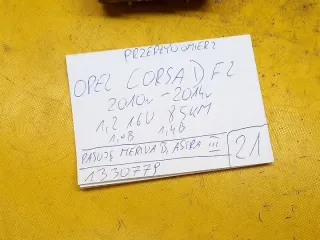 PRZEPŁYWOMIERZ
OPEL CORSA D FL
2010r - 2014r
1,2 16V 85KM
1,0B 1,4B
PASUJE MERIVA B, ASTRA III
21
1330779